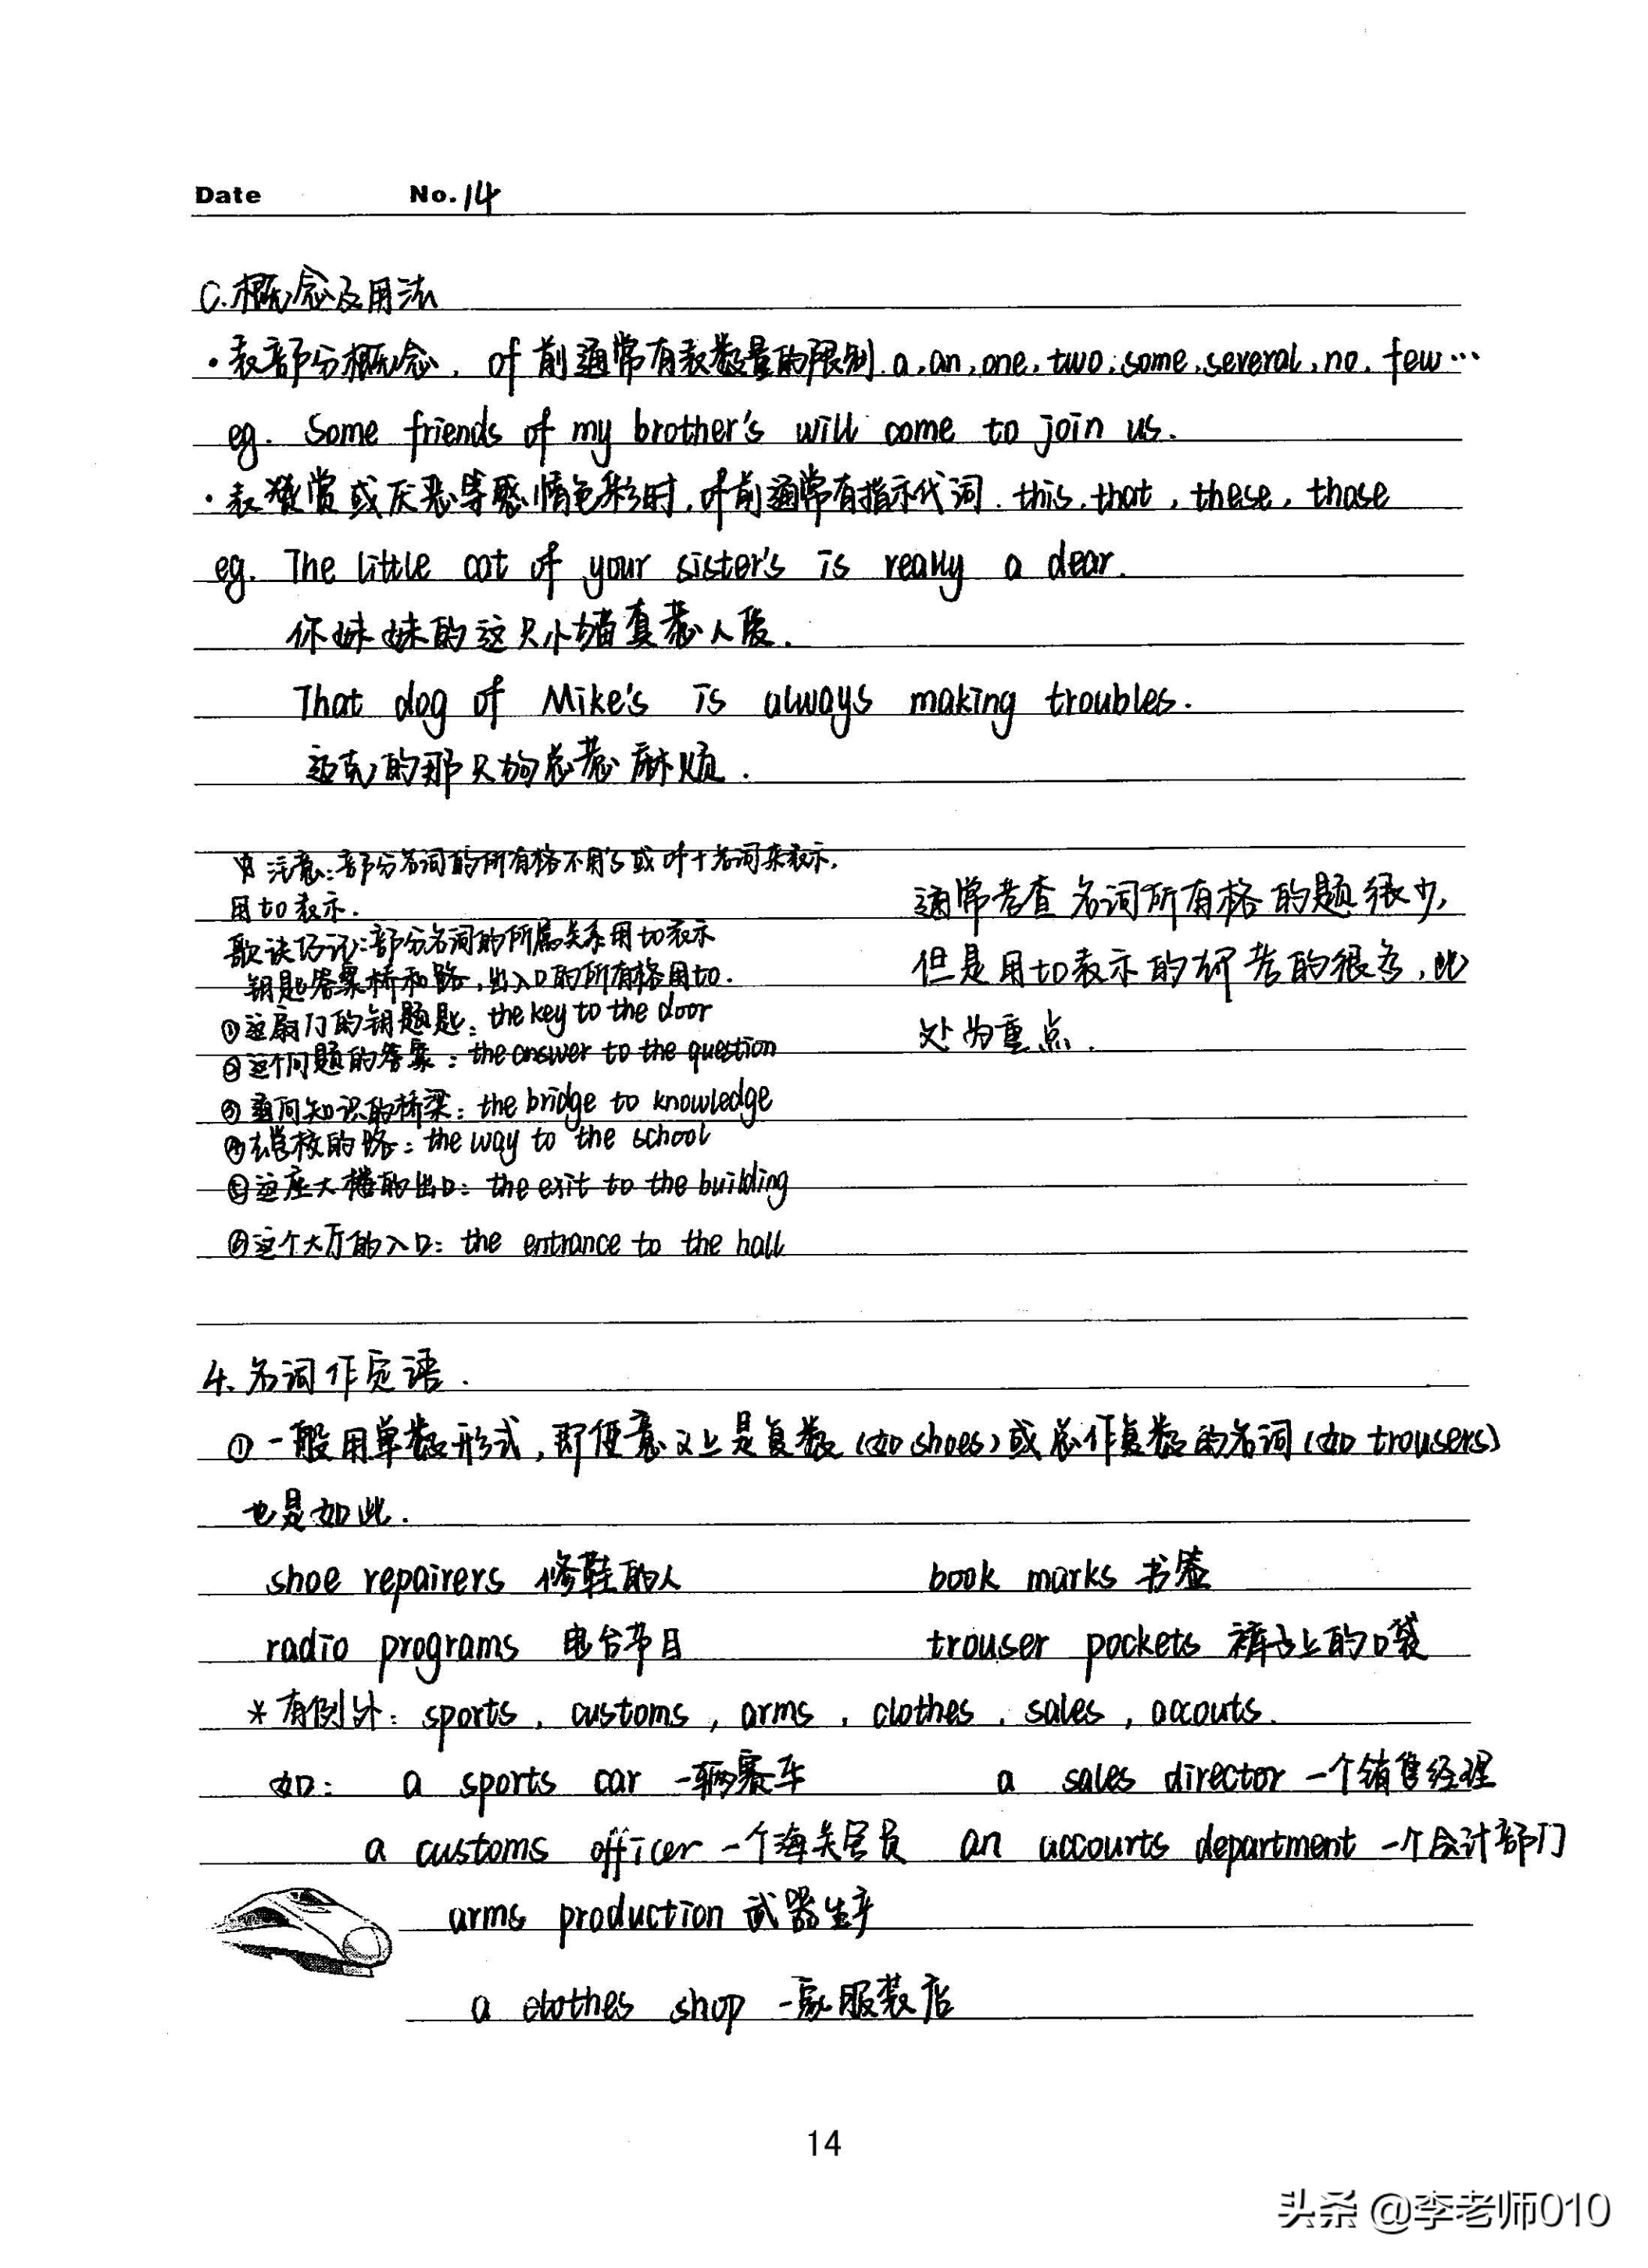 Date No. 14
C. 概念及用法
· 表部分概念. of 前通常有表数量的限制. a, an, one, two, some, several, no, few …
eg. Some friends of my brother's will come to join us.
· 表赞赏或厌恶等感情色彩时, of前通常有指示代词. this, that, these, those
eg. The little cat of your sister's is really a dear.
你妹妹的这只小猫真惹人爱.
That dog of Mike's is always making troubles.
迈克的那只狗总惹麻烦.
注意: 部分名词的所有格不用's或of+名词来表示.
用to表示.
歌诀巧记: 部分名词的所属关系用to表示
钥匙答案桥和路, 出入口的所有格用to.
①这扇门的钥匙: the key to the door
②这个问题的答案: the answer to the question
③通向知识的桥梁: the bridge to knowledge
④去学校的路: the way to the school
⑤这座大楼的出口: the exit to the building
⑥这个大厅的入口: the entrance to the hall
通常考查名词所有格的题很少,
但是用to表示的却考的很多, 此
处为重点.
4. 名词作定语.
① 一般用单数形式, 即使意义上是复数 (如shoes) 或总作复数的名词 (如 trousers)
也是如此.
shoe repairers 修鞋的人 book marks 书签
radio programs 电台节目 trouser pockets 裤子上的口袋
* 有例外: sports, customs, arms, clothes, sales, accouts.
如: a sports car 一辆赛车 a sales director 一个销售经理
a customs officer 一个海关官员 an accourts department 一个会计部门
arms production 武器生产
a clothes shop 一家服装店
14
头条 @李老师010